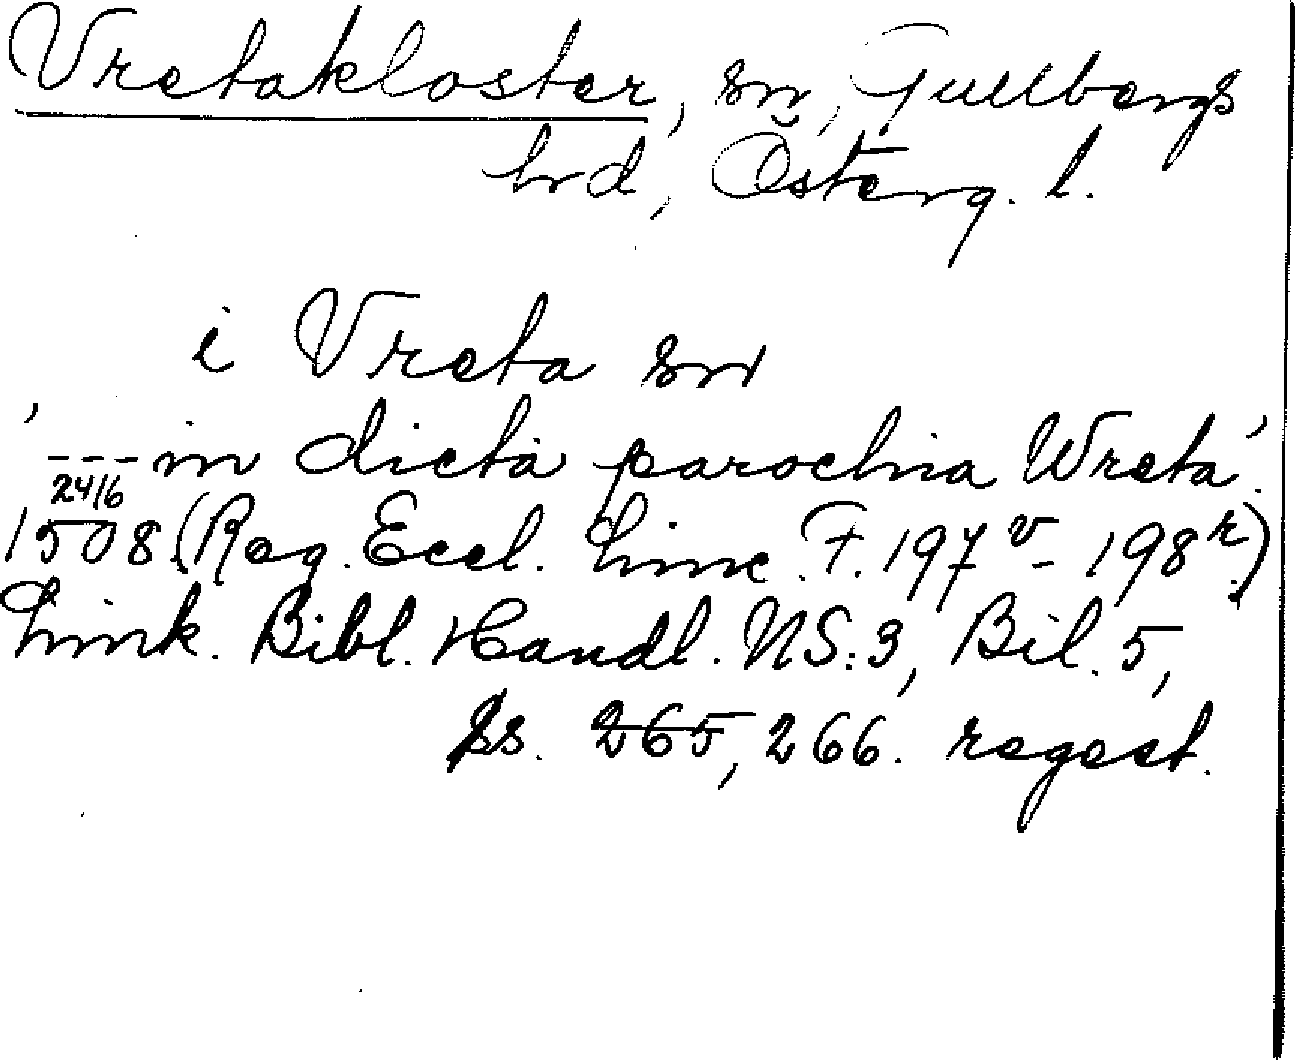 Vretakloster, sn, Gullbergs
hrd, Österg. l.
i Vreta sn
' --- in dicta parochia Wreta'.
24/6
1508. (Reg. Eccl. Linc. F. 197 v - 198 r.)
Link. Bibl. Handl. NS:3, Bil. 5,
ss. 265, 266. regest.